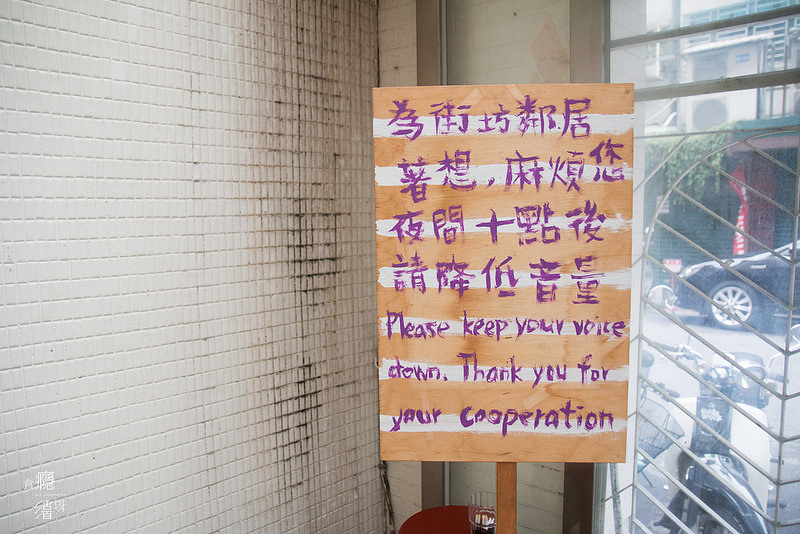 為街坊鄰居
著想，麻煩您
夜間十點後
請降低音量
Please keep your voice
down. Thank you for
your cooperation